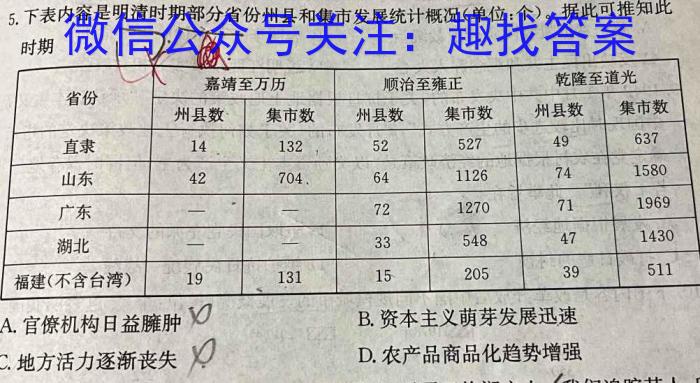 5. 下表内容是明清时期部分省份州县和集市发展统计概况(单位:个)。据此可推知此
时期
微信公众号关注:趣找答案
省份 嘉靖至万历 顺治至雍正 乾隆至道光
州县数 集市数 州县数 集市数 州县数 集市数
直隶 14 132 52 527 49 637
山东 42 704 64 1126 74 1580
广东 — — 72 1270 71 1969
湖北 — — 33 548 47 1430
福建(不含台湾) 19 131 15 205 39 511
A. 官僚机构日益臃肿 B. 资本主义萌芽发展迅速
C. 地方活力逐渐丧失 D. 农产品商品化趋势增强